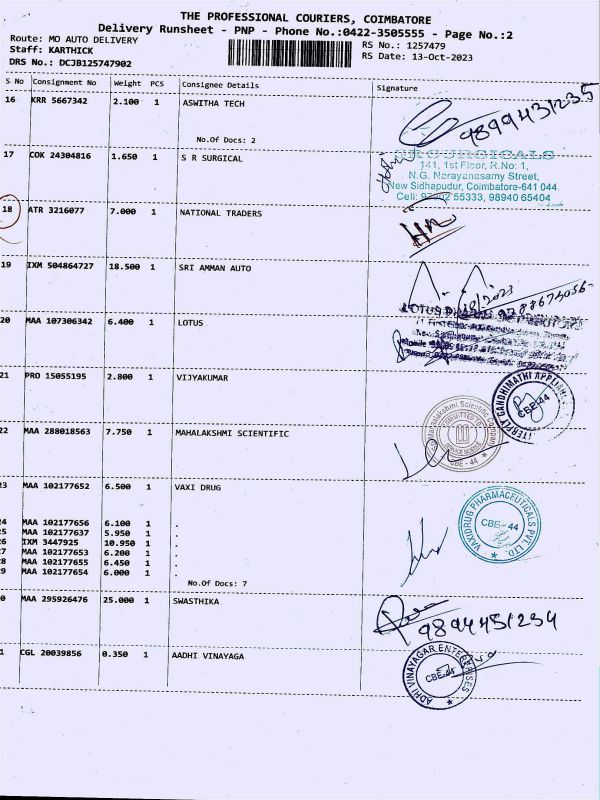 THE PROFESSIONAL COURIERS, COIMBATORE
Delivery Runsheet - PNP - Phone No.:0422-3505555 - Page No.:2
Route: MO AUTO DELIVERY
RS No.: 1257479
Staff: KARTHICK
RS Date: 13-Oct-2023
DRS No.: DCJB125747902
S No Consignment No Weight PCS Consignee Details Signature
16 KRR 5667342 2.100 1 ASWITHA TECH
9899431235
No.Of Docs: 2
17 COK 24304816 1.650 1 S R SURGICAL
141, 1st Floor, R.No: 1,
N.G. Narayanasamy Street,
New Sidhapudur, Coimbatore-641 044.
Cell: 55333, 98940 65404
18 ATR 3216077 7.000 1 NATIONAL TRADERS
19 IXM 504864727 18.500 1 SRI AMMAN AUTO
20 MAA 107306342 6.400 1 LOTUS
LOTUS
21 PRO 15055195 2.800 1 VIJYAKUMAR
GANDHIMATHI APPLIAN
CBE-44
22 MAA 288018563 7.750 1 MAHALAKSHMI SCIENTIFIC
Mahalakshmi Scientific Company
CBE - 44
23 MAA 102177652 6.500 1 VAXI DRUG
VAXIDRUG PHARMACEUTICALS PVT. LTD.
CBE - 44
24 MAA 102177656 6.100 1 .
25 MAA 102177637 5.950 1 .
26 IXM 3447925 10.950 1 .
27 MAA 102177653 6.200 1 .
28 MAA 102177655 6.450 1 .
29 MAA 102177654 6.000 1 .
No.Of Docs: 7
0 MAA 295926476 25.000 1 SWASTHIKA
9894451234
1 CGL 20039856 0.350 1 AADHI VINAYAGA
ADHI VINAYAGAR ENTERPRISES
CBE-44